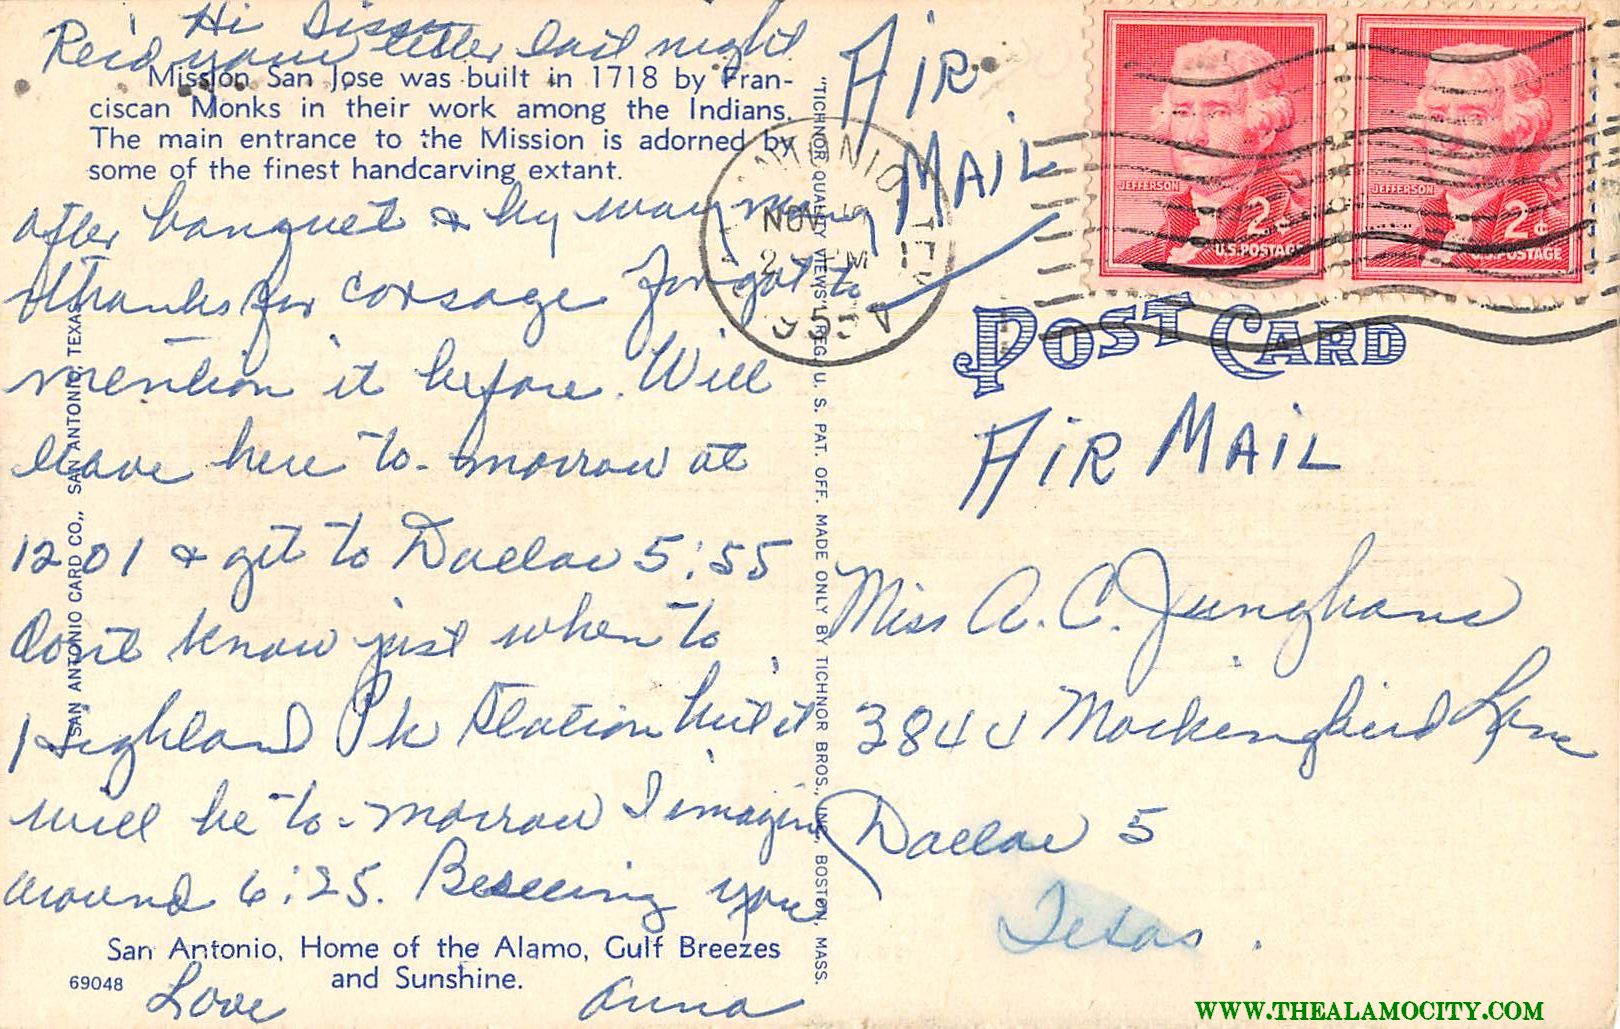 Hi Sis
Rec'd your letter last night
Mission San Jose was built in 1718 by Fran-
ciscan Monks in their work among the Indians.
The main entrance to the Mission is adorned by
some of the finest handcarving extant.
after banquet & by way many
thanks for corsage forgot to
mention it before. Will
leave here to-morrow at
12:01 & get to Dallas 5:55
dont know just when to
Highland Pk Station but it
will be to-morrow I imagine
around 6:25. Beseeing you
San Antonio, Home of the Alamo, Gulf Breezes
and Sunshine.
69048
Love Anna
SAN ANTONIO CARD CO., SAN ANTONIO, TEXAS
"TICHNOR QUALITY VIEWS" REG. U. S. PAT. OFF. MADE ONLY BY TICHNOR BROS., INC., BOSTON, MASS.
AIR
MAIL
ANTONIO TEX
NOV
2 PM
JEFFERSON
2¢
U.S. POSTAGE
JEFFERSON
2¢
U.S. POSTAGE
POST CARD
AIR MAIL
Miss A. C. Junghans
3844 Mockingbird Lane
Dallas 5
Texas.
WWW.THEALAMOCITY.COM